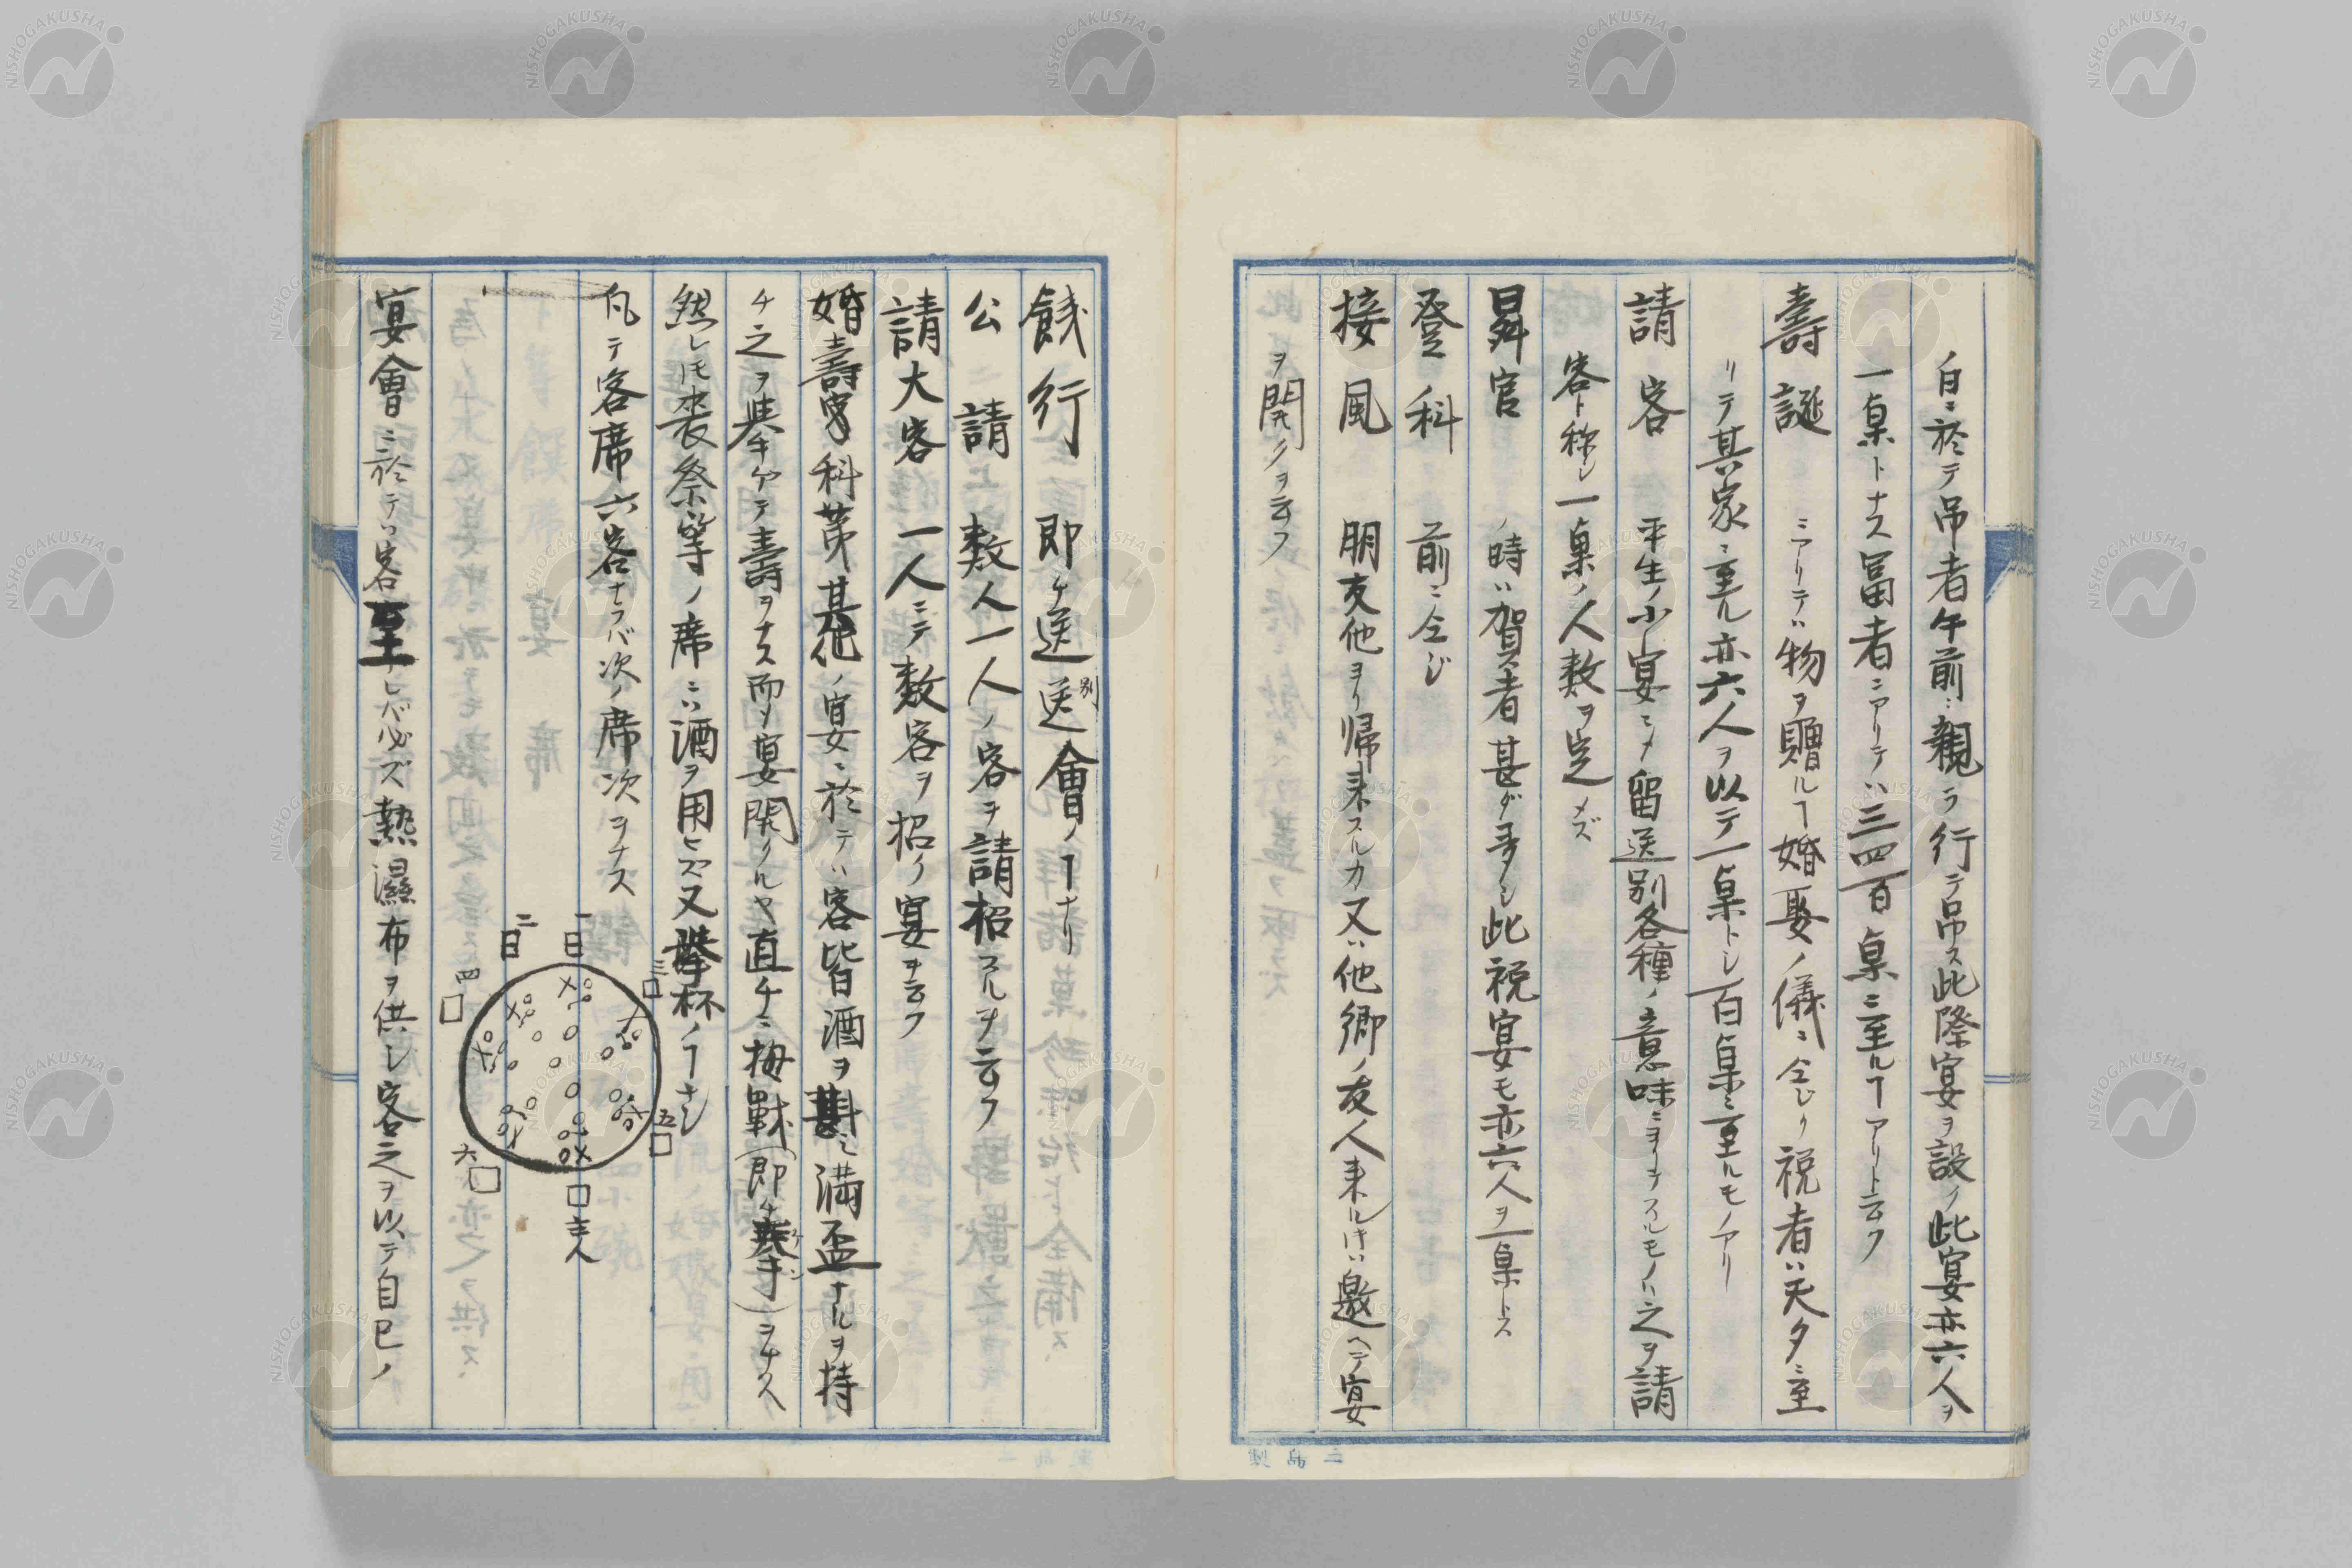 ノ日ニ於テ吊者午前ニ親ラ行テ吊ス此際宴ヲ設ク此宴亦六人ヲ
一桌トナス富者ニアリテハ三四百桌ニ至ルヿアリト云フ
壽誕 ニアリテハ物ヲ贈ルヿ婚娶ノ儀ニ仝じク祝者ハ天夕ニ至
リテ其家ニ至ル亦六人ヲ以テ一桌トシ百桌ニ至ルモノアリ
請客 平生ノ小宴ニメ留送別各種ノ意味ニヨリテスルモノハ之ヲ請
客ト称シ一桌ノ人数ヲ定メズ
昇官 ノ時ハ賀者甚ダ多シ此祝宴モ亦六人ヲ一桌トス
登科 前ニ仝じ
接風 朋友他ヨリ帰来スルカ又ハ他郷ノ友人来ル片ハ邀ヘテ宴
ヲ開クヲ云フ
餞行 即チ送送別會ノヿナリ
公請 数人一人ノ客ヲ請招スルヲ云フ
請大客 一人ニテ数客ヲ招ク宴ヲ云フ
婚壽宴科第其他ノ宴ニ於テハ客皆酒ヲ斟ミ満盃ナルヲ持
チ之ヲ挙ケテ壽ヲナス而メ宴開クルヤ直チニ拇戦(即チ拳ケン)ヲナス
然レ𪜈喪祭等ノ席ニハ酒ヲ用ヒズ又挙杯ノヿナシ
凡テ客席六客ナラバ次ノ席次ヲナス
一
二
三
四
五
六
主人
宴會ニ於テハ客至レバ必ズ熱濕布ヲ供シ客之ヲ以テ自己ノ
NISHOGAKUSHA